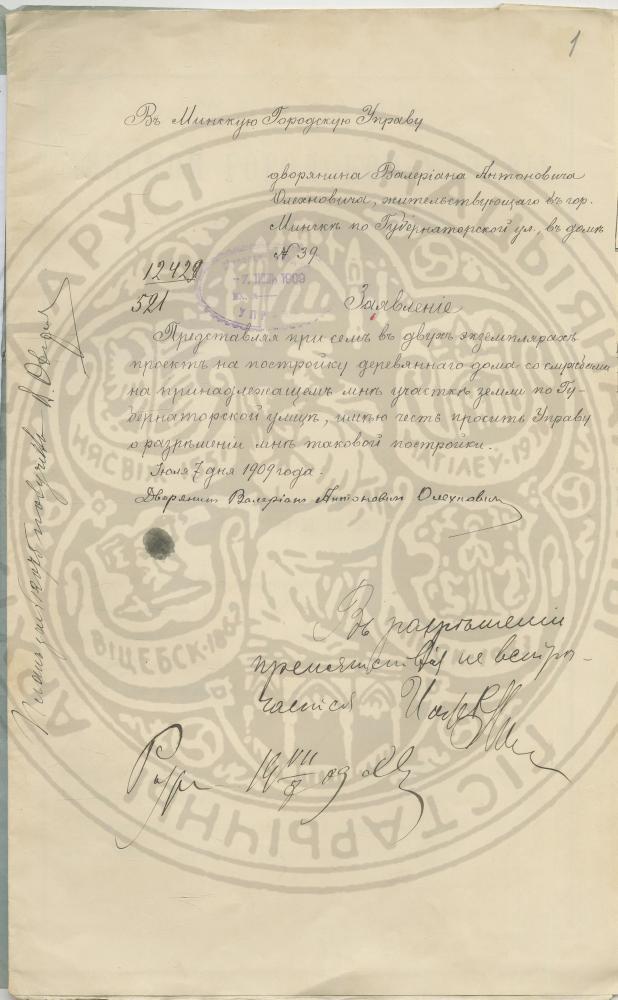 1
Въ Минскую Городскую Управу
дворянина Валеріана Антоновича
Олехновича, жительствующаго въ гор.
Минскѣ по Губернаторской ул., въ домѣ
№ 39
12429
521
7. ІЮЛ 1909
УПР
Заявленіе
Представляя при семъ въ двухъ экземплярахъ
проектъ на постройку деревяннаго дома со службами
на принадлежащемъ мнѣ участкѣ земли по Гу-
бернаторской улицѣ, имѣю честь просить Управу
о разрѣшеніи мнѣ таковой постройки.
Іюля 7 дня 1909 года.
Дворянинъ Валеріанъ Антоновичъ Олехновичъ
Въ разрѣшеніи
препятствій не встрѣ-
чается
Разр 19 VII/9 09
получилъ
НАЦЫЯНАЛЬНЫ
ГІСТАРЫЧНЫ
БЕЛАРУСІ
НЯСВІЖ
МАГІЛЕЎ
ВІЦЕБСК